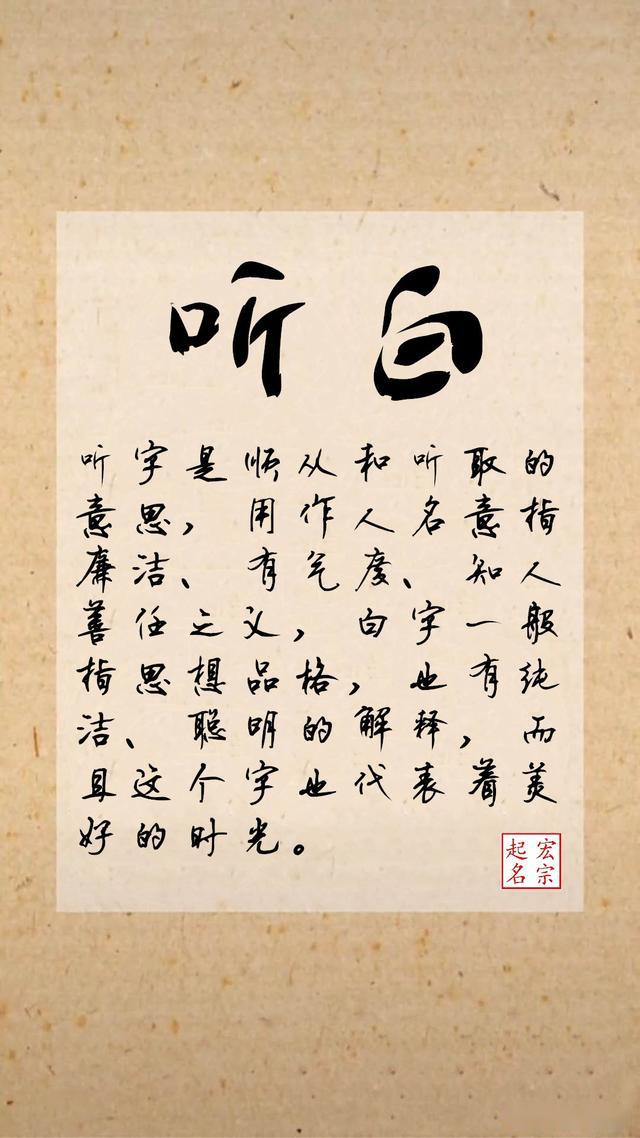 听白
听字是顺从和听取的
意思，用作人名意指
廉洁、有气度、知人
善任之义，白字一般
指思想品格，也有纯
洁、聪明的解释，而
且这个字也代表着美
好的时光。
宏宗
起名